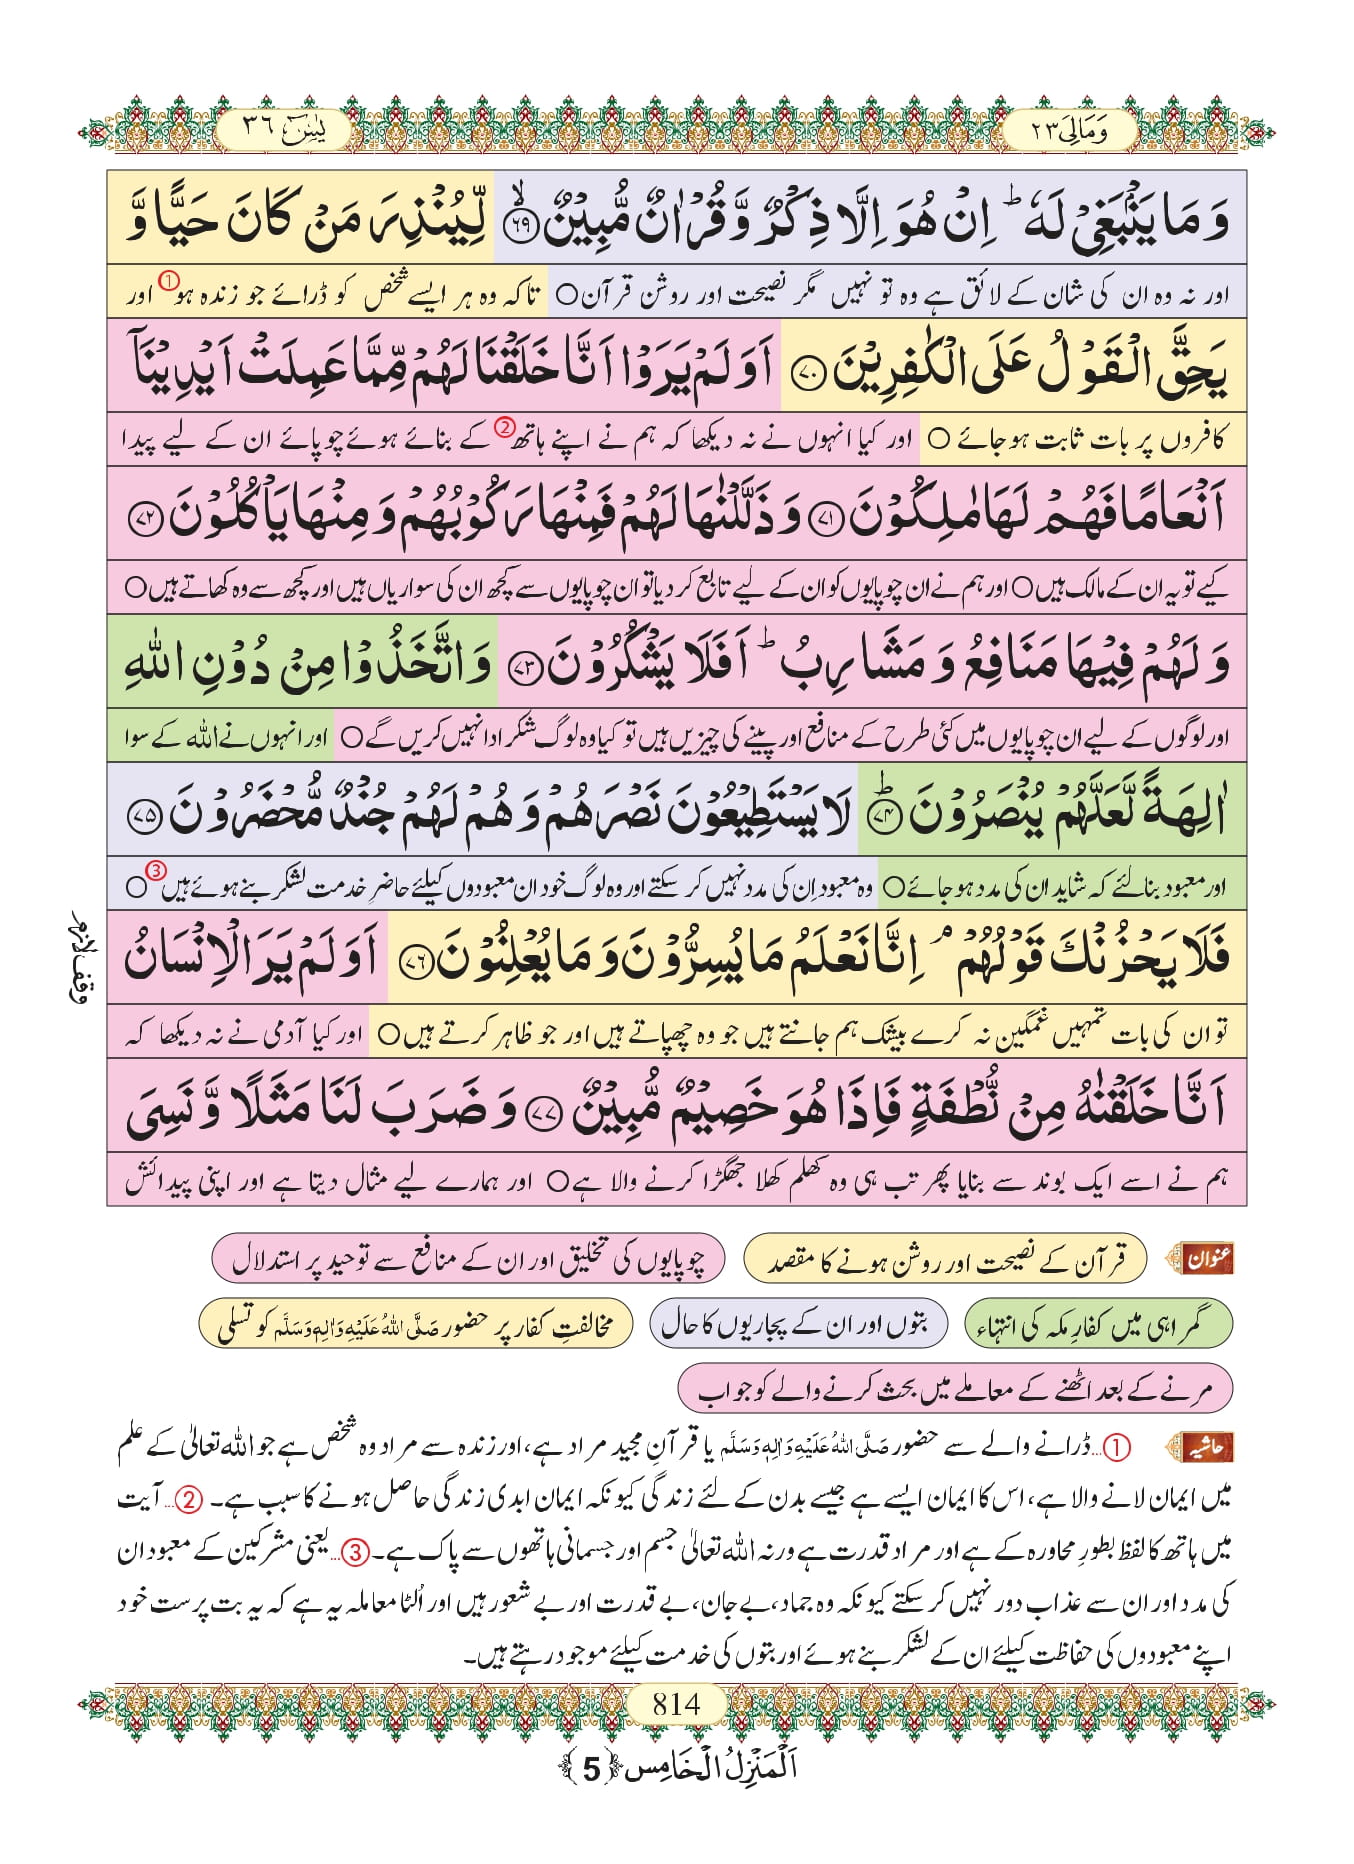 وَمَالِیَ ٢٣
یٰسٓ ٣٦
وَمَا یَنْۢبَغِیْ لَهٗ ؕ اِنْ هُوَ اِلَّا ذِكْرٌ وَّ قُرْاٰنٌ مُّبِیْنٌ ۙ﴿٦٩﴾ لِّیُنْذِرَ مَنْ كَانَ حَیًّا وَّ
اور نہ وہ ان کی شان کے لائق ہے وہ تو نہیں مگر نصیحت اور روشن قرآن○ تاکہ وہ ہر ایسے شخص کو ڈرائے جو زندہ ہو① اور
یَحِقَّ الْقَوْلُ عَلَی الْكٰفِرِیْنَ ﴿٧٠﴾ اَوَ لَمْ یَرَوْا اَنَّا خَلَقْنَا لَهُمْ مِّمَّا عَمِلَتْ اَیْدِیْنَاۤ
کافروں پر بات ثابت ہوجائے ○ اور کیا انہوں نے نہ دیکھا کہ ہم نے اپنے ہاتھ② کے بنائے ہوئے چوپائے ان کے لیے پیدا
اَنْعَامًا فَهُمْ لَهَا مٰلِكُوْنَ ﴿٧١﴾ وَ ذَلَّلْنٰهَا لَهُمْ فَمِنْهَا رَكُوْبُهُمْ وَ مِنْهَا یَاْكُلُوْنَ ﴿٧٢﴾
کیے تو یہ ان کے مالک ہیں○ اور ہم نے ان چوپایوں کو ان کے لیے تابع کر دیا تو ان چوپایوں سے کچھ ان کی سواریاں ہیں اور کچھ سے وہ کھاتے ہیں○
وَ لَهُمْ فِیْهَا مَنَافِعُ وَ مَشَارِبُ ؕ اَفَلَا یَشْكُرُوْنَ ﴿٧٣﴾ وَ اتَّخَذُوْا مِنْ دُوْنِ اللّٰهِ
اور لوگوں کے لیے ان چوپایوں میں کئی طرح کے منافع اور پینے کی چیزیں ہیں تو کیا وہ لوگ شکر ادا نہیں کریں گے○ اور انہوں نے اللہ کے سوا
اٰلِهَةً لَّعَلَّهُمْ یُنْصَرُوْنَ ؕ﴿٧٤﴾ لَا یَسْتَطِیْعُوْنَ نَصْرَهُمْ وَ هُمْ لَهُمْ جُنْدٌ مُّحْضَرُوْنَ ﴿٧٥﴾
اور معبود بنا لئے کہ شاید ان کی مدد ہوجائے○ وہ معبود اِن کی مدد نہیں کرسکتے اور وہ لوگ خود ان معبودوں کیلئے حاضرِ خدمت لشکر بنے ہوئے ہیں③○
وقف لازم
فَلَا یَحْزُنْكَ قَوْلُهُمْ ۘ اِنَّا نَعْلَمُ مَا یُسِرُّوْنَ وَ مَا یُعْلِنُوْنَ ﴿٧٦﴾ اَوَ لَمْ یَرَ الْاِنْسَانُ
تو ان کی بات تمہیں غمگین نہ کرے بیشک ہم جانتے ہیں جو وہ چھپاتے ہیں اور جو ظاہر کرتے ہیں○ اور کیا آدمی نے نہ دیکھا کہ
اَنَّا خَلَقْنٰهُ مِنْ نُّطْفَةٍ فَاِذَا هُوَ خَصِیْمٌ مُّبِیْنٌ ﴿٧٧﴾ وَ ضَرَبَ لَنَا مَثَلًا وَّ نَسِیَ
ہم نے اسے ایک بوند سے بنایا پھر تب ہی وہ کھلم کھلا جھگڑا کرنے والا ہے○ اور ہمارے لیے مثال دیتا ہے اور اپنی پیدائش
عنوان قرآن کے نصیحت اور روشن ہونے کا مقصد چوپایوں کی تخلیق اور ان کے منافع سے توحید پر استدلال
گمراہی میں کفارِ مکہ کی انتہاء بتوں اور ان کے پجاریوں کا حال مخالفتِ کفار پر حضور صَلَّی اللہُ عَلَیْہِ وَاٰلِہٖ وَسَلَّم کو تسلی
مرنے کے بعد اٹھنے کے معاملے میں بحث کرنے والے کو جواب
حاشیہ ①...ڈرانے والے سے حضور صَلَّی اللہُ عَلَیْہِ وَاٰلِہٖ وَسَلَّم یا قرآنِ مجید مراد ہے، اور زندہ سے مراد وہ شخص ہے جو اللہ تعالیٰ کے علم
میں ایمان لانے والا ہے، اس کا ایمان ایسے ہے جیسے بدن کے لئے زندگی کیونکہ ایمان ابدی زندگی حاصل ہونے کا سبب ہے۔ ②...آیت
میں ہاتھ کا لفظ بطورِ محاورہ کے ہے اور مراد قدرت ہے ورنہ اللہ تعالیٰ جسم اور جسمانی ہاتھوں سے پاک ہے۔ ③...یعنی مشرکین کے معبود ان
کی مدد اور ان سے عذاب دور نہیں کرسکتے کیونکہ وہ جماد، بے جان، بے قدرت اور بے شعور ہیں اور اُلٹا معاملہ یہ ہے کہ یہ بت پرست خود
اپنے معبودوں کی حفاظت کیلئے ان کے لشکر بنے ہوئے اور بتوں کی خدمت کیلئے موجود رہتے ہیں۔
814
اَلْمَنْزِلُ الْخَامِس ﴿5﴾